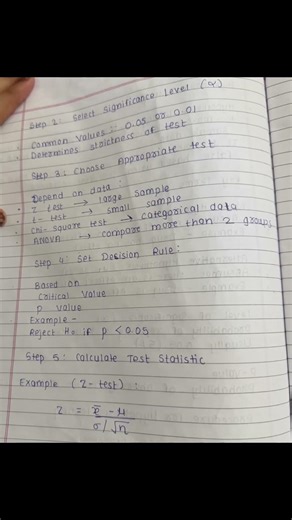 Step 2: Select Significance Level (α)
• Common Values: 0.05 or 0.01
• Determines strictness of test
Step 3: Choose Appropriate test
• Depend on data:
• Z test → large sample
• t - test → small sample
• Chi-square test → categorical data
• ANOVA → compare more than 2 groups
Step 4: Set Decision Rule:
Based on
Critical Value
p value
Example -
Reject H₀ if p < 0.05
Step 5: Calculate Test Statistic
Example (Z-test)
Z = x̄ - μ
σ/√n